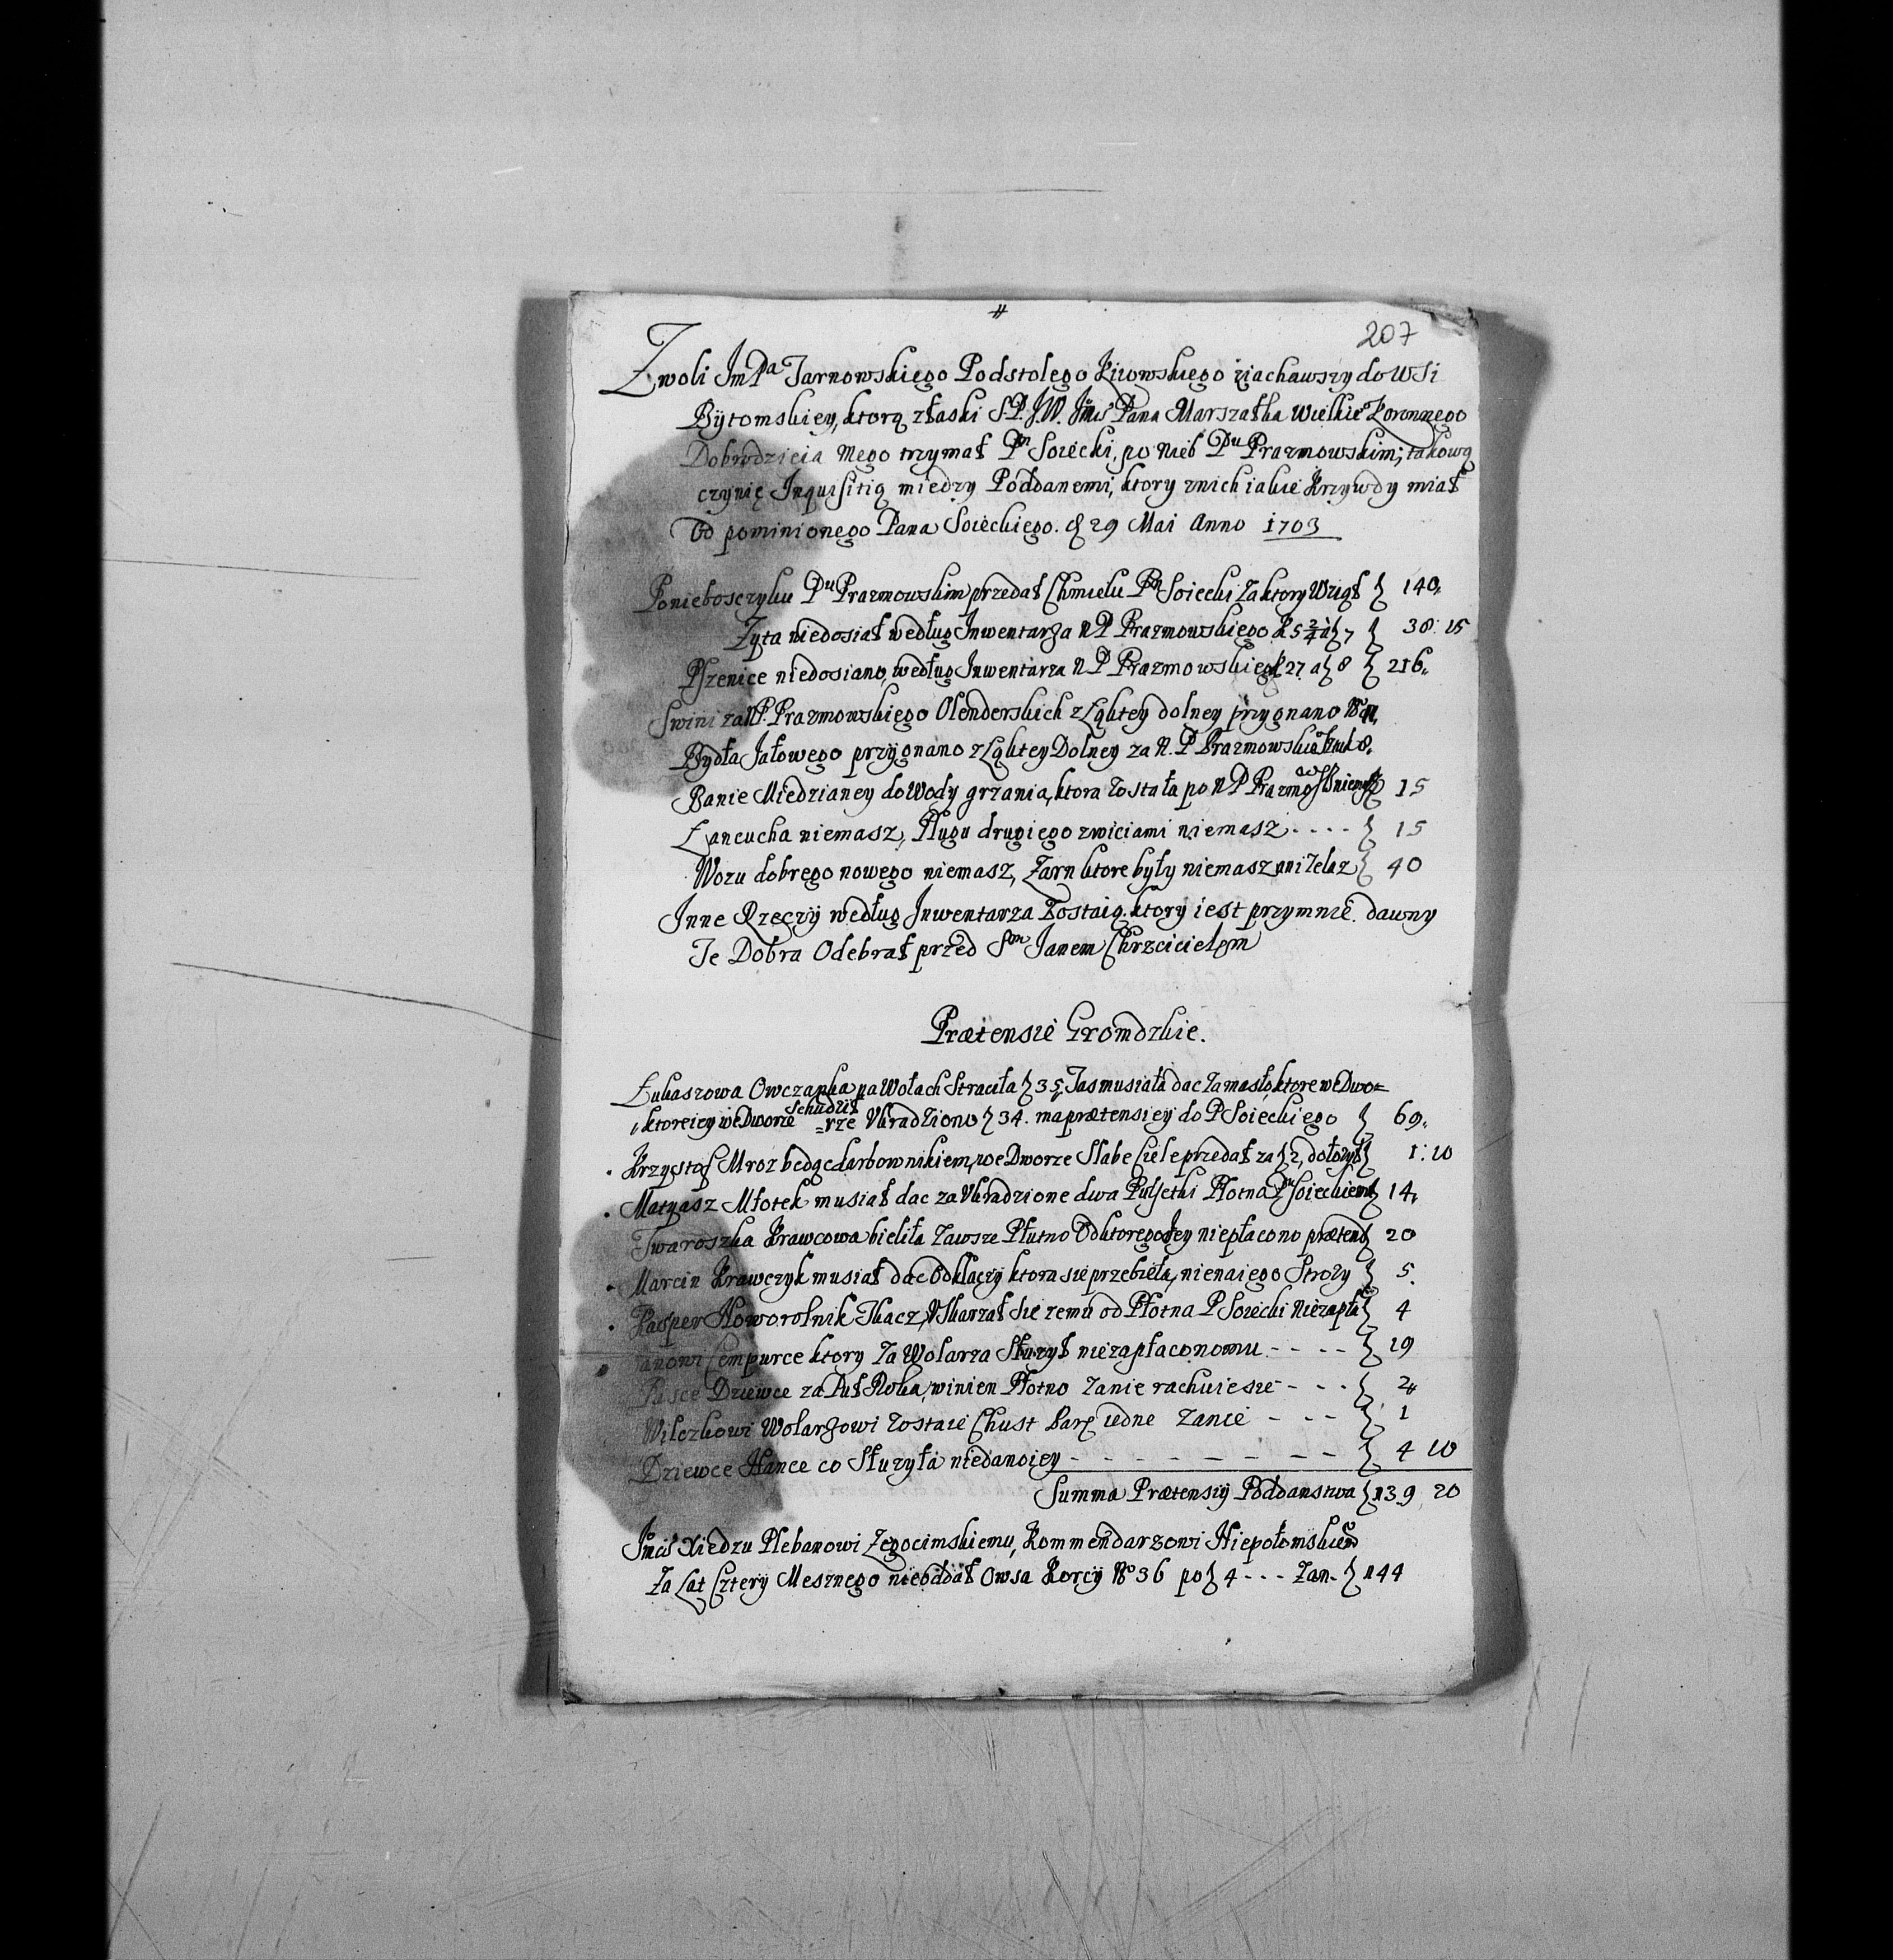 207
Z woli JmPa Tarnowskiego Podstolego Kiiowskiego ziachawszy do WSi
Bÿtomskiey, ktorą złaski S.P. J.W. Jmci Pana Marszałka Wielkieo Koronnego
Dobrodzieia Mego trzymał Pn Soiecki, po Nieb Pu Prazmowskim; takową
czynię Inquisitią miedzy Poddanemi, ktory znich iakie Krzywdy miał
Od pominionego Pana Soieckiego. d 29 Mai Anno 1703
Ponieboszczyku Pu Prazmowskim przedał Chmielu Pn Soiecki Za ktory Wziął 140,
Zyta niedosiał według Inwentarza N P Prazmowskiego K 5 2/4 a 7 38: 15
Pszenice niedosiano, według Inwentarza N P Prazmowskieg K 27 a 8 216,
Swini za NP. Prazmowskiego Olenderskich z Ląktey dolney przygnano
Bydła Jałowego przygnano z Ląktey Dolney za N. P Prazmowskieo
Banie Miedzianey do Wody grzania, ktora Została po N P Prazmows niemasz 15
Łancucha niemasz, Pługu drugiego zwiciami niemasz - - - - 15
Wozu dobrego nowego niemasz, Zarn ktore były niemasz ani Zelaz 40
Inne Rzeczÿ według Inwentarza Zostaią. ktory iest przymnie. dawny
Te Dobra Odebrał przed Sm Janem Chrzcicielem
Prætensie Gromdzkie.
Łukaszowa Owczarka na Wołach Straciła 35, Tas musiała dac Za masło, ktore we Dwo=
ktoreiey we Dworze Schudził =rze Ukradziono 34. ma prætensiey do P Soieckiego 69,
Krzystof Mroz bedąc karbownikiem, we Dworze Słabe Ciele przedał za 2, dołożył 1: 10
Matyasz Młotek musiał dac za Ukradzione dwa Pułsetki Płotna Pu Soieckiemu 14,
Twaroszka Krawcowa bieliła Zawsze Płutno Od ktorego Jey niepłacono prætend 20
Marcin Krawczyk musiał dac Od klaczy ktora sie przebieła, nienaiego Strozy 5.
Kasper Noworolnik Tkacz, Uskarzał sie zemu od Płotna P Soiecki Niezapła 4
Janowi Cempurce ktory Za Wolarza Słuzył niezapłacono mu - - - - 19
Dziewce za Puł Roka, winien Płotno Zanie rachuie sie - - - 2
Wilczkowi Wolarzowi Zostaie Chust Parę iedne Zanie - - - 1
Dziewce Hance co Słuzyła niedanoiey - - - - - - - - 4 10
Summa Prætensiÿ Poddanstwa 139 20
Jmci Xiedzu Plebanowi Zegocimskiemu, Kommendarzowi Niepołomskiem
Za Lat Czterÿ Mesznego nieoddał Owsa Korcÿ No 36 po 4 - - - Zan - 144